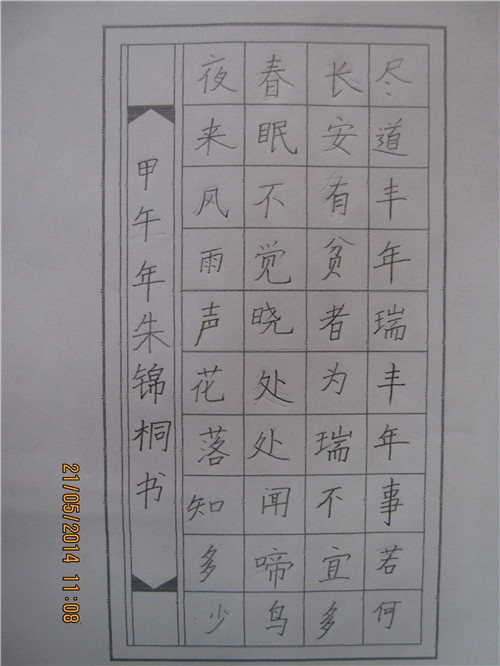 尽道丰年瑞丰年事若何
长安有贫者为瑞不宜多
春眠不觉晓处处闻啼鸟
夜来风雨声花落知多少
甲午年朱锦桐书
21/05/2014 11:08